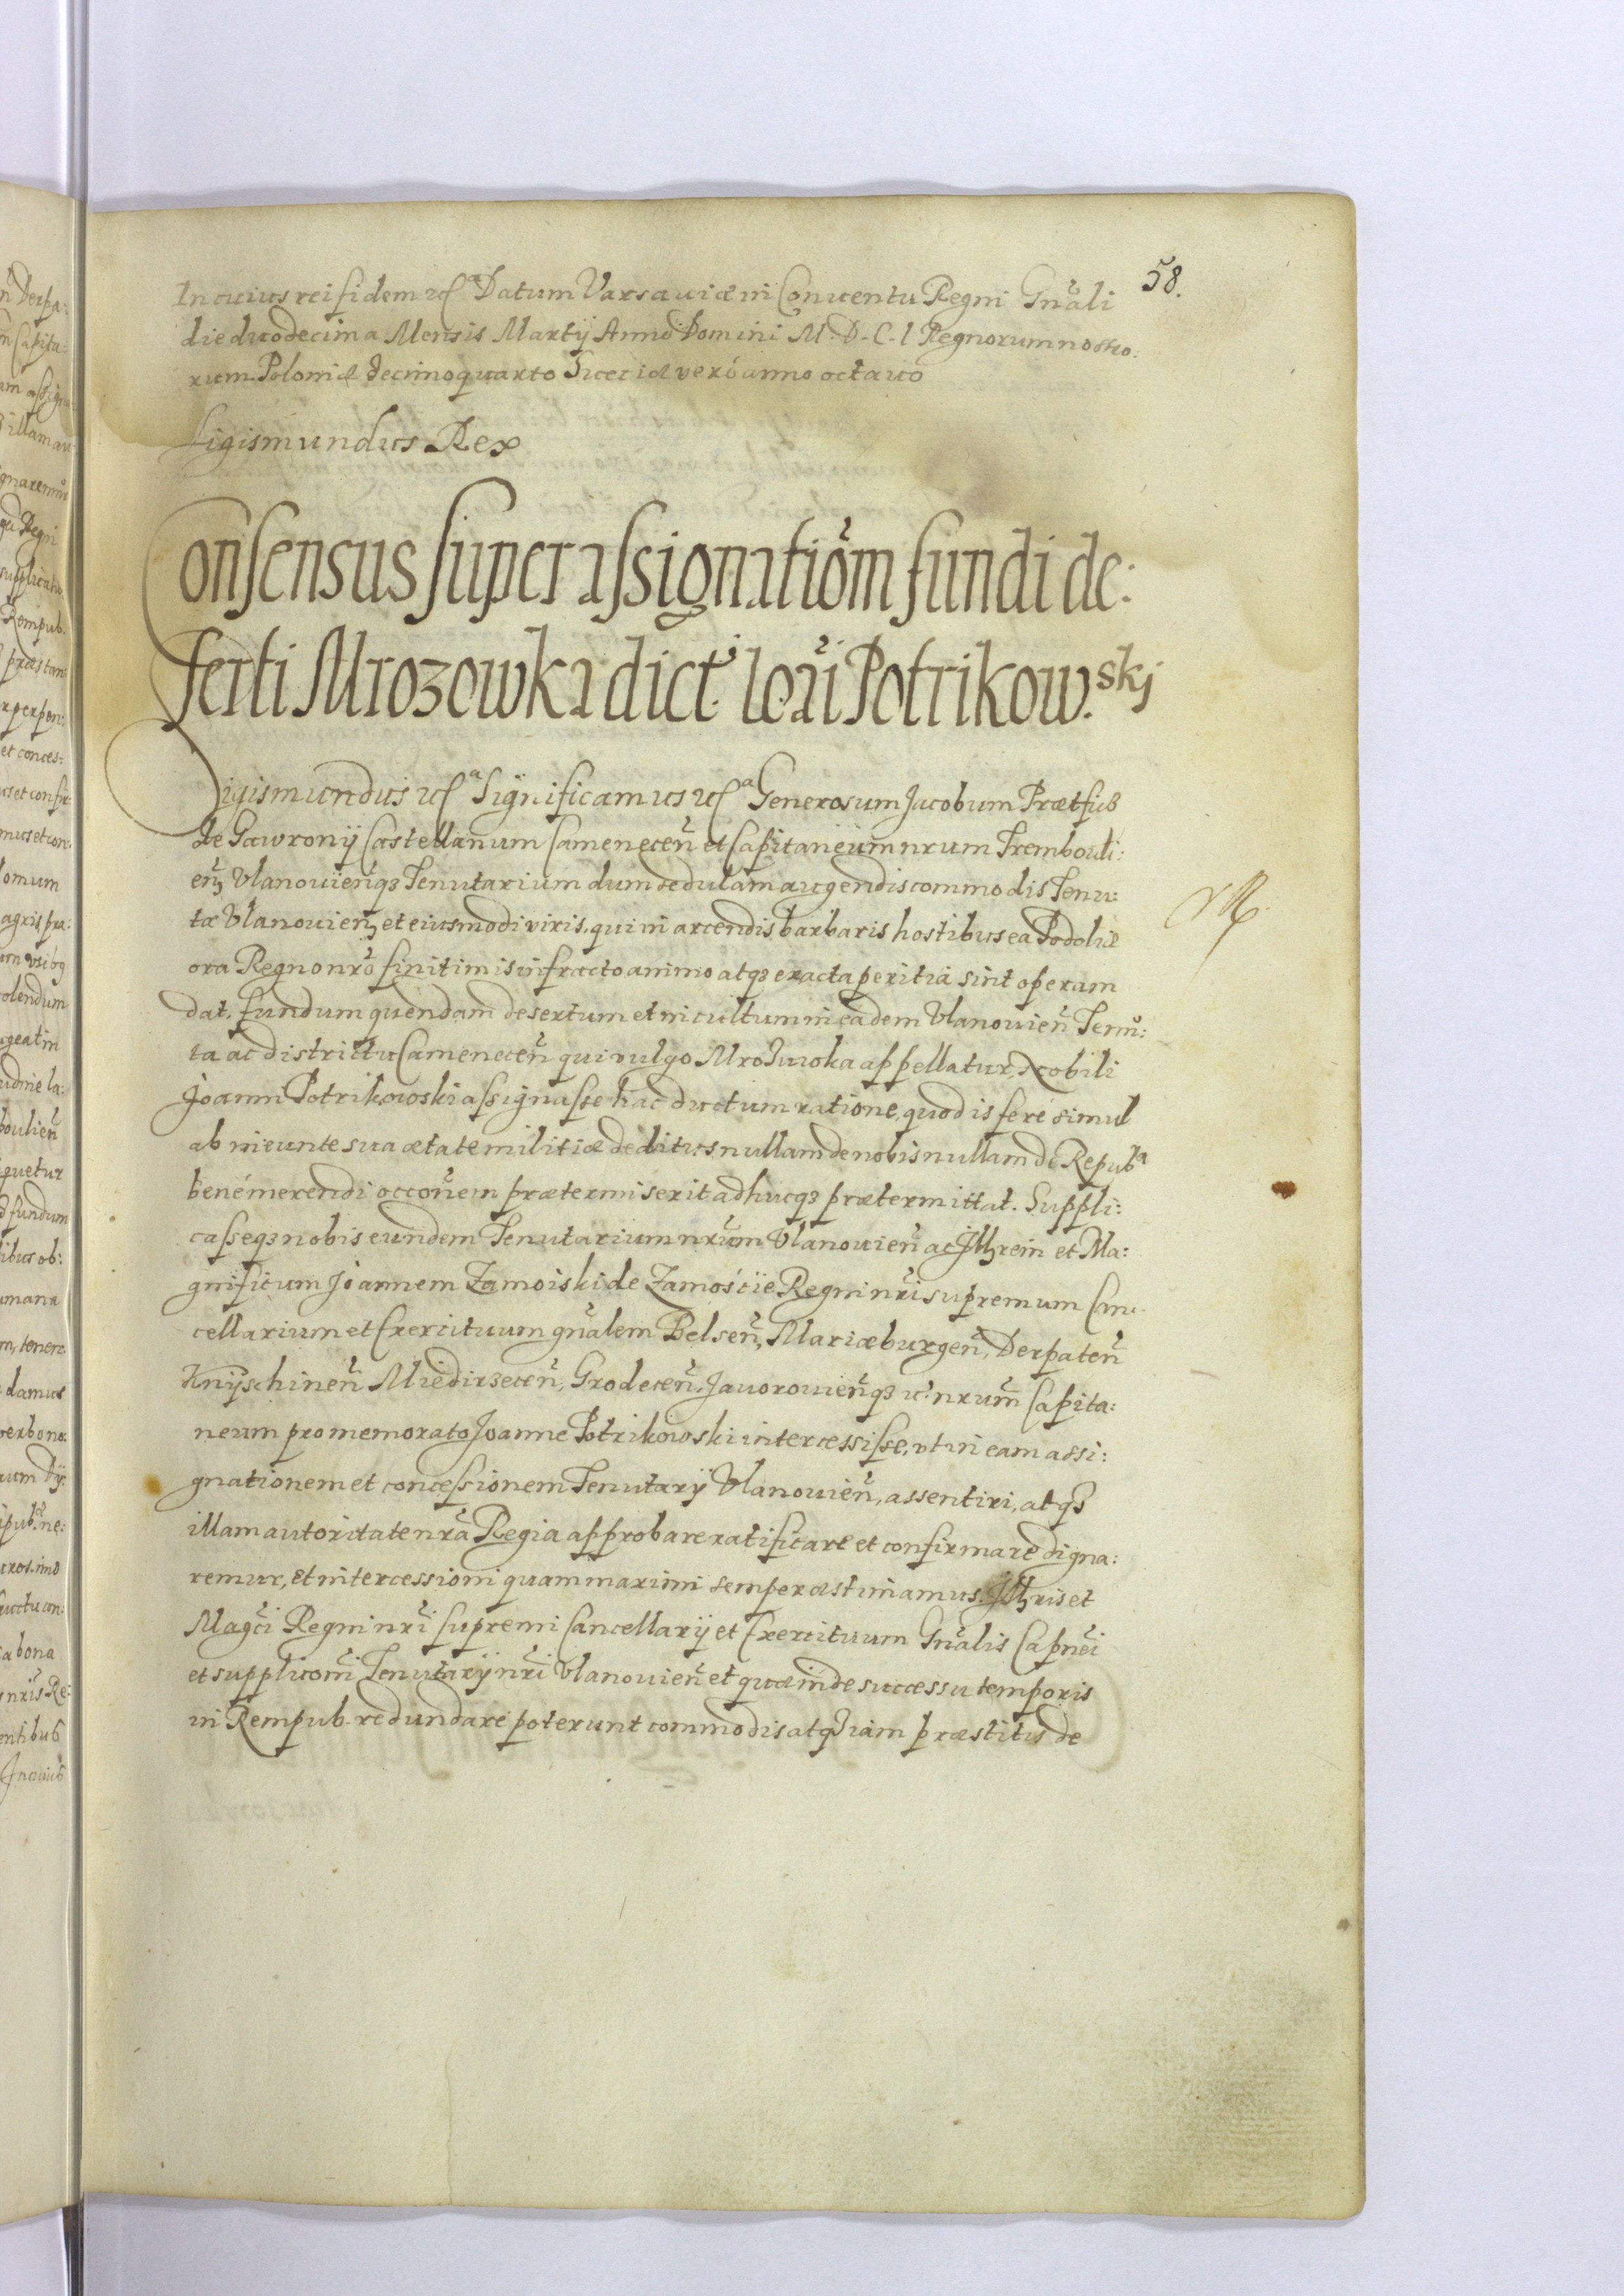 58.
In cuius rei fidem etc̃ª Datum Varsauiæ in Conuentu Regni Gn̄ali
die duodecima Mensis Martij Anno Domini M. D. C. I Regnorum nostro:
rum Poloniæ decimoquarto Sueciæ veró anno octauo
Sigismundus Rex
Consensus super assignatiōm fundi de:
serti Mrozowka dict. Ioāi Potrikow.skj
Sigismundus etcª Significamus etcª Generosum Jacobum Prætfus
de Gawronÿ Castellanum Camenecen̄ et Capitaneum nrum Trembouli:
en̄ Vlanouien̄q3 Tenutarium dum sedulam augendis commodis Tenu:
tæ Vlanouien̄ et eiusmodi viris, qui in arcendis barbaris hostibus ea Podoliæ
ora Regno nr̄o finitimis infracto animo atq3 exacta peritia sint operam
dat. fundum quendam desertum et incultum in eadem Vlanouien̄ Tenu:
ta ac districtu Camenecen̄ qui vulgo Mrozuwka appellatur, Nobili
Joanni Potrikowski assignasse hac ductum ratione, quod is feré simul
ab ineunte sua ætate militiæ deditus nullam de nobis nullam de Repubª
bené merendi occōnem prætermiserit adhucq3 prætermittat. Suppli:
casseq3 nobis eundem Tenutarium nr̄um Vlanouien̄ ac Jllrem et Ma:
gnificum Joannem Zamoiski de Zamoście Regni nr̄i supremum Can:
cellarium et Exercituum gn̄alem Belsen̄, Mariæburgen̄, Derpaten̄
Knÿschinen̄ Miedirzecen̄, Grodecen̄. Jauorouien̄q3 etc. nrum̄ Capita:
neum pro memorato Joanne Potrikowski intercessisse, vt in eam assi:
gnationem et concessionem Tenutarÿ Vlanouien̄, assentiri, atq3
illam autoritate nr̄a Regia approbare ratificare et confirmare digna:
remur, Et intercessioni quam maximi semper æstimamus. Jllris et
Magc̄i Regni nr̄i supremi Cancellarÿ et Exercituum Gn̄alis Capn̄ei
et supplicōni Tenutarÿ nr̄i Vlanouien̄ et quæ inde successu temporis
in Rempub. redundare poterunt commodis atq3 iam præstitis de